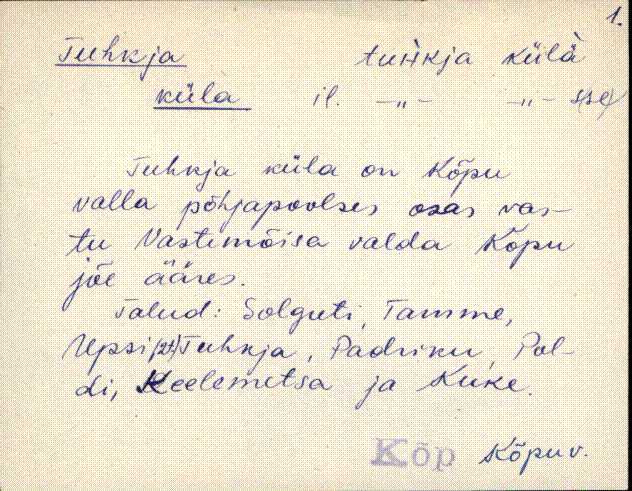 1.
Tuhkja tuhkja külä
küla il. –„– –„– s(se)
Tuhkja küla on Kõpu
valla põhjapoolses osas vas-
tu Vastemõisa valda Kõpu
jõe ääres.
Talud: Solguti, Tamme,
Upsi (2t) Tuhkja, Padriku, Pol-
di, Keelemetsa ja Kuke.
Kõp Kõpu v.